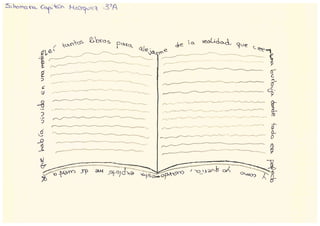 Capitán Márquez 3ºA
Leí tantos libros para alejarme de la realidad que creé
una burbuja donde todo era perfecto
y como yo quería, cuando esta explotó me di cuenta de
que había vivido en una mentira